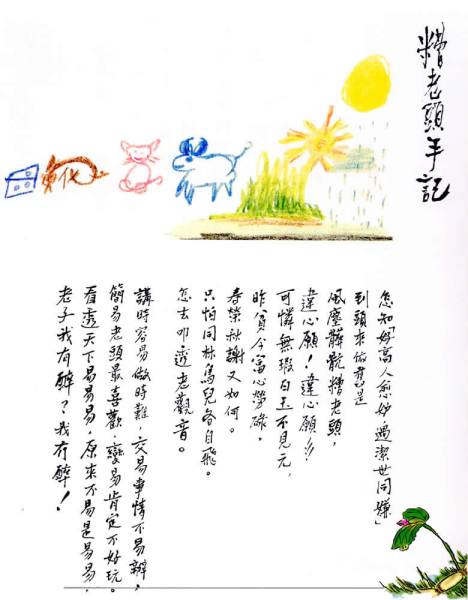 糟老頭手記
怎知「好高人愈妒 過潔世同嫌」
到頭來依舊是
風塵髒骯糟老頭，
違心願！違心願！！
可憐無瑕白玉不見元，
昨貧今富心勞碌，
春榮秋謝又如何。
只怕同林鳥兒各自飛。
怎去叩透老觀音。
講時容易做時難，交易事情不易辦，
簡易老頭最喜歡，變易肯定不好玩。
看透天下易易易，原來不易是易易，
老子我有醉？我有醉！